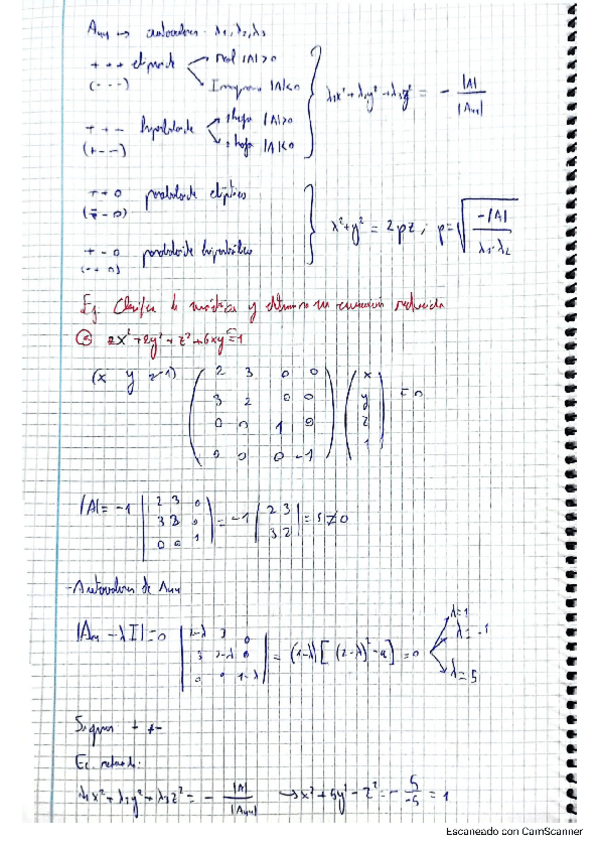 A₄₄ → autovalores λ₁, λ₂, λ₃
+ + + elipsoide Real |A|>0
(- - -) |A|<0
+ + - hiperboloide 1 hoja |A|>0
(+ - -) 2 hojas |A|<0
λ₁x² + λ₂y² + λ₃z² = - |A| / |A₄₄|
+ + 0 paraboloide elíptico
(- - 0)
+ - 0 paraboloide hiperbólico
x² + y² = 2pz ; p = √(-|A| / λ₁·λ₂)
Ej. Clasifica la y determina su ecuación reducida
2x² + 2y² + z² + 6xy = 1
(x y z 1) ( 2 3 0 0 ) ( x )
3 2 0 0 y = 0
0 0 1 0 z
0 0 0 -1 1
|A| = -1 | 2 3 0 | = -1 | 2 3 | = 5 ≠ 0
3 2 0 3 2
0 0 1
- Autovalores de A₄₄
|A₄₄ - λI| = 0 | 2-λ 3 0 | = (1-λ) [ (2-λ)² - 9 ] = 0 λ=1
3 2-λ 0 λ=-1
0 0 1-λ λ=5
Signos + + -
Ec. reducida:
λ₁x² + λ₂y² + λ₃z² = - |A| / |A₄₄| → x² + 5y² - z² = - 5 / -5 = 1
Escaneado con CamScanner